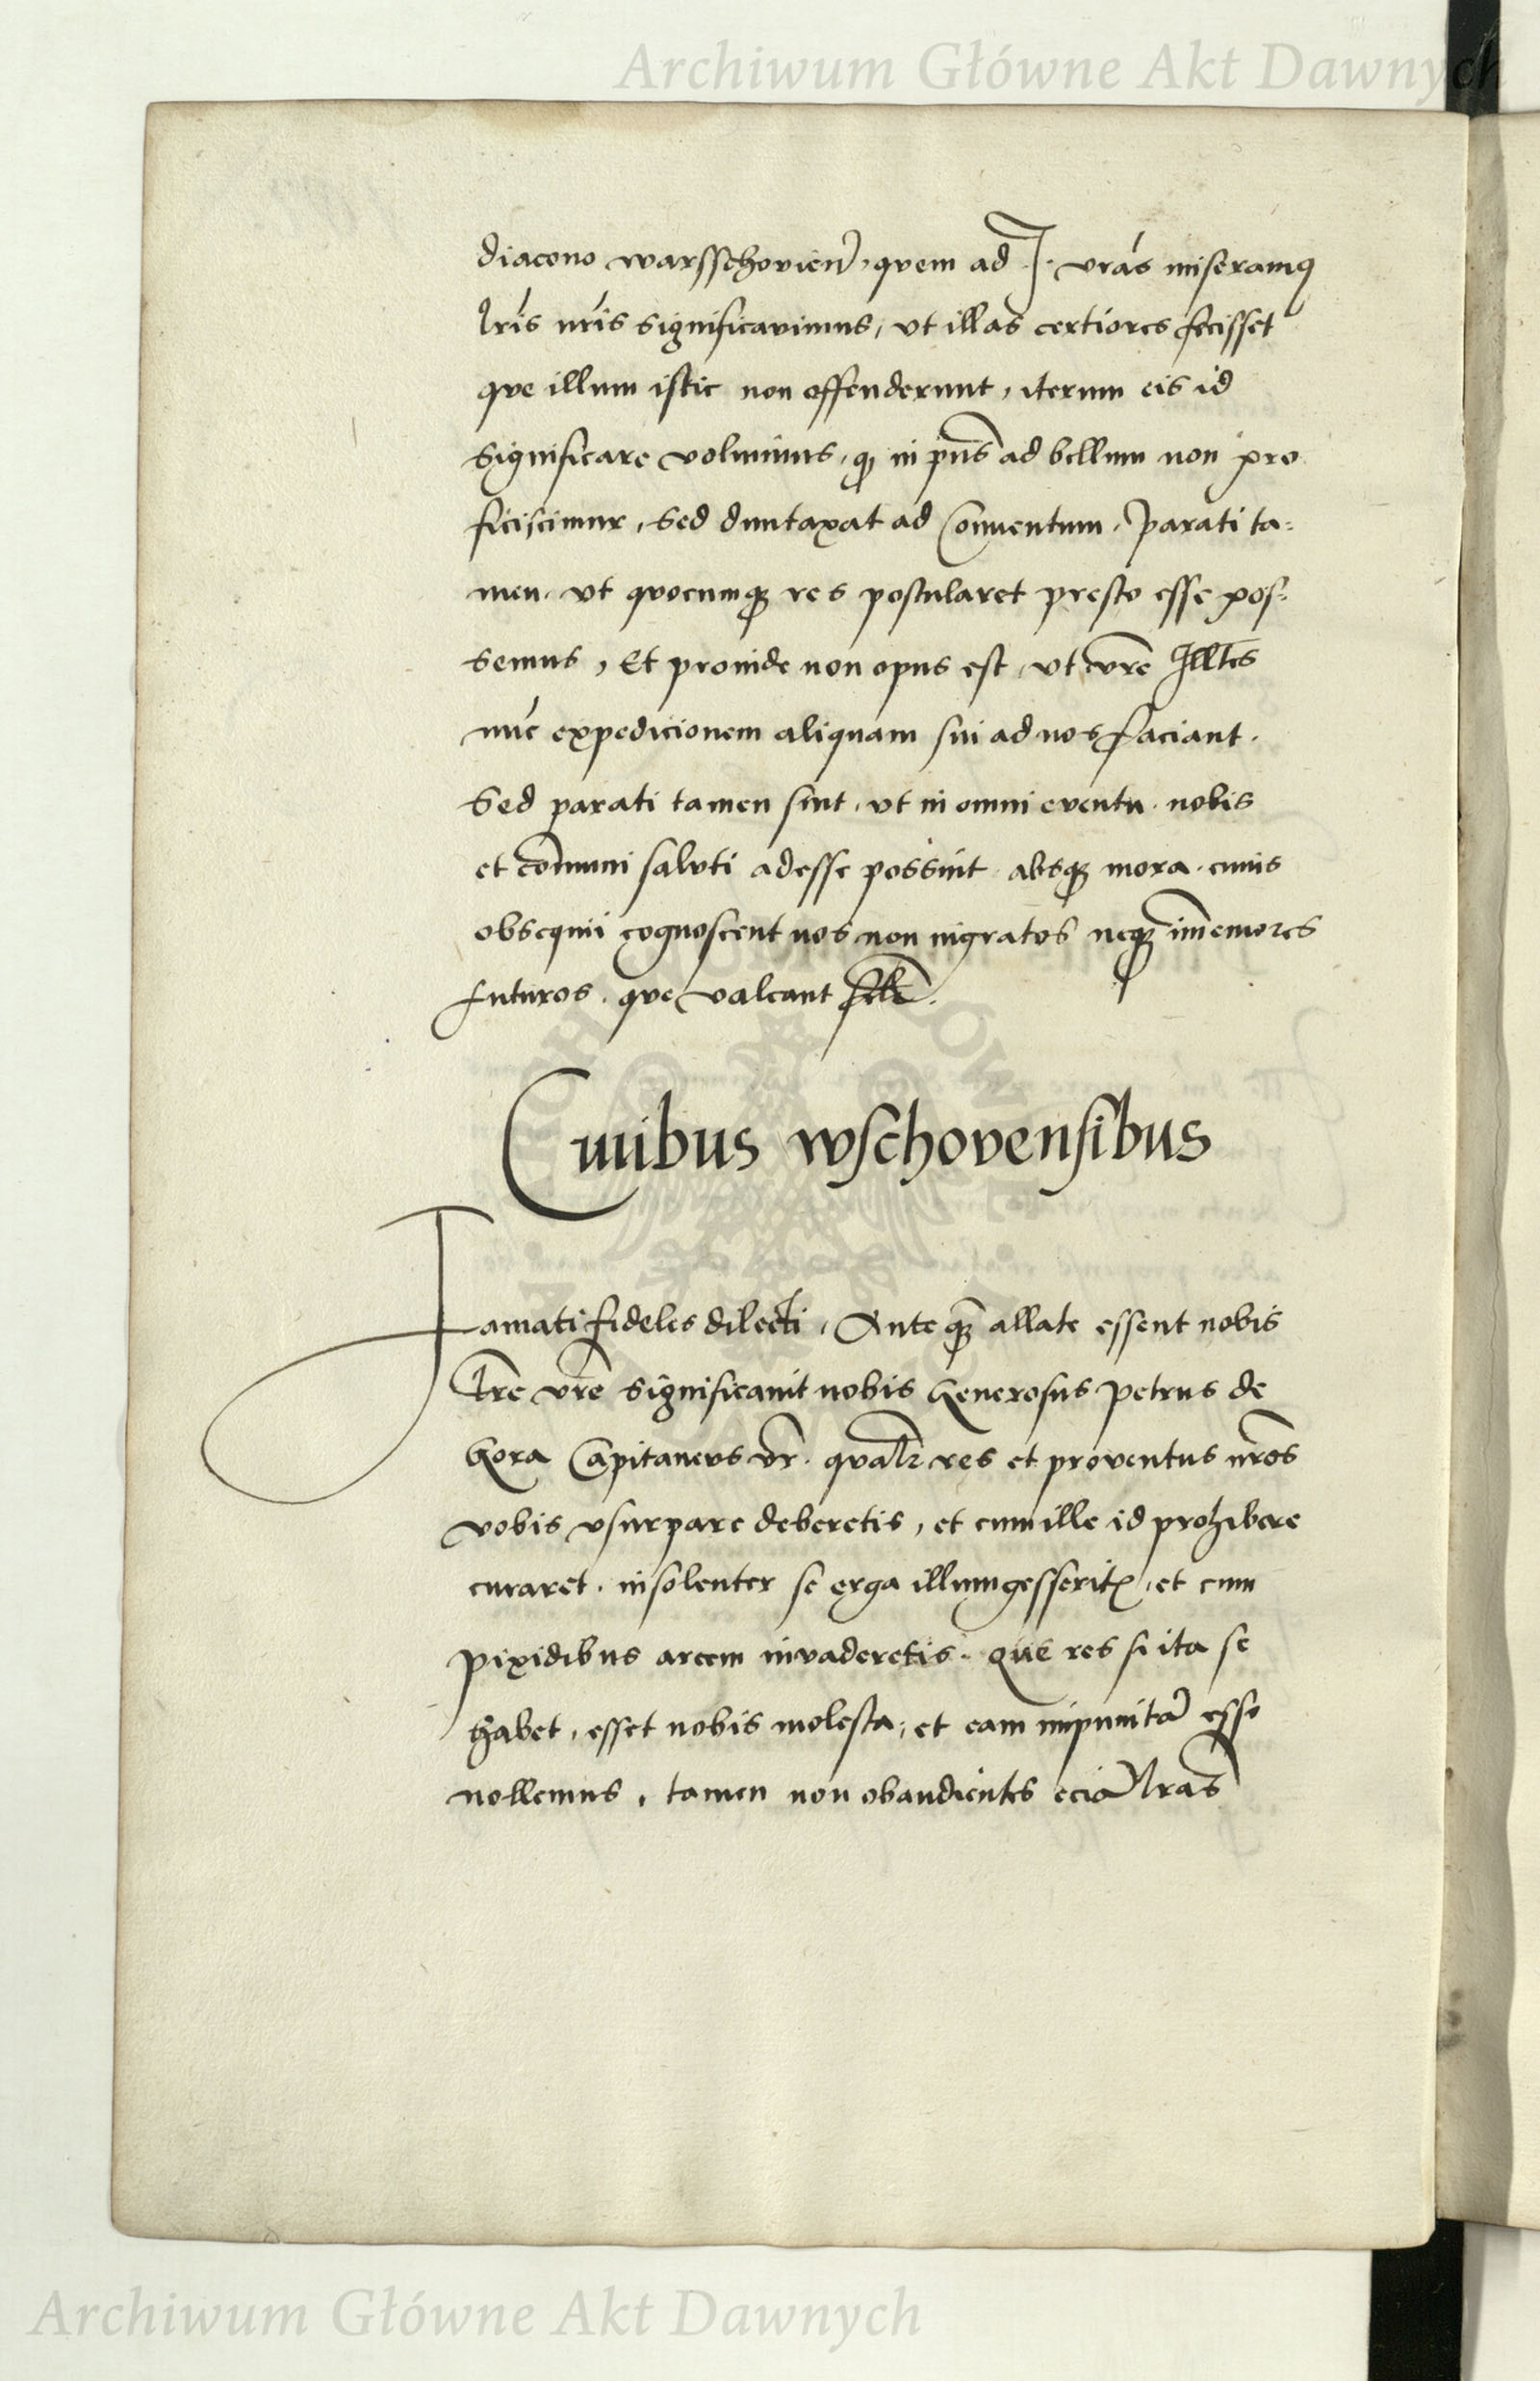 Archiwum Główne Akt Dawnych
diacono warsschovien̄, qvem ad J. vrās miseramq
lrīs nrīs significavimus, vt illas certiores fecisset
qve illum istic non offenderunt, iterum eis id
significare volumus, qꝫ in pn̄s ad bellum non pro
ficiscimur, Sed duntaxat ad Conventum, Parati ta=
men, vt qvocumqꝫ res postularet presto esse pos=
semus, Et proinde non opus est, vt vrē Illtēs
nūc expedicionem aliquam sui ad nos faciant.
Sed parati tamen sint, vt in omni eventu, nobis
et com̄uni salvti adesse possint absqꝫ mora, cuius
obsequii cognoscent nos non ingratos neqꝫ im̄emores
futuros, qve valeant
Civibus wschovensibus
Famati fideles dilecti, Anteqꝫ̄ allate essent nobis
lrē vrē significavit nobis Generosus Petrus de
Gora Capitanevs vr̄. qvalr̄ res et proventus nrōs
vobis vsurpare deberetis, et cum ille id prohibere
curaret, insolenter se erga illum gesseritꝭ, et cum
pixidibus arcem invaderetis. Que res si ita se
habet, esset nobis molesta, et eam impunitā esse
nollemus, tamen non obaudientes eciā lrās
Archiwum Główne Akt Dawnych